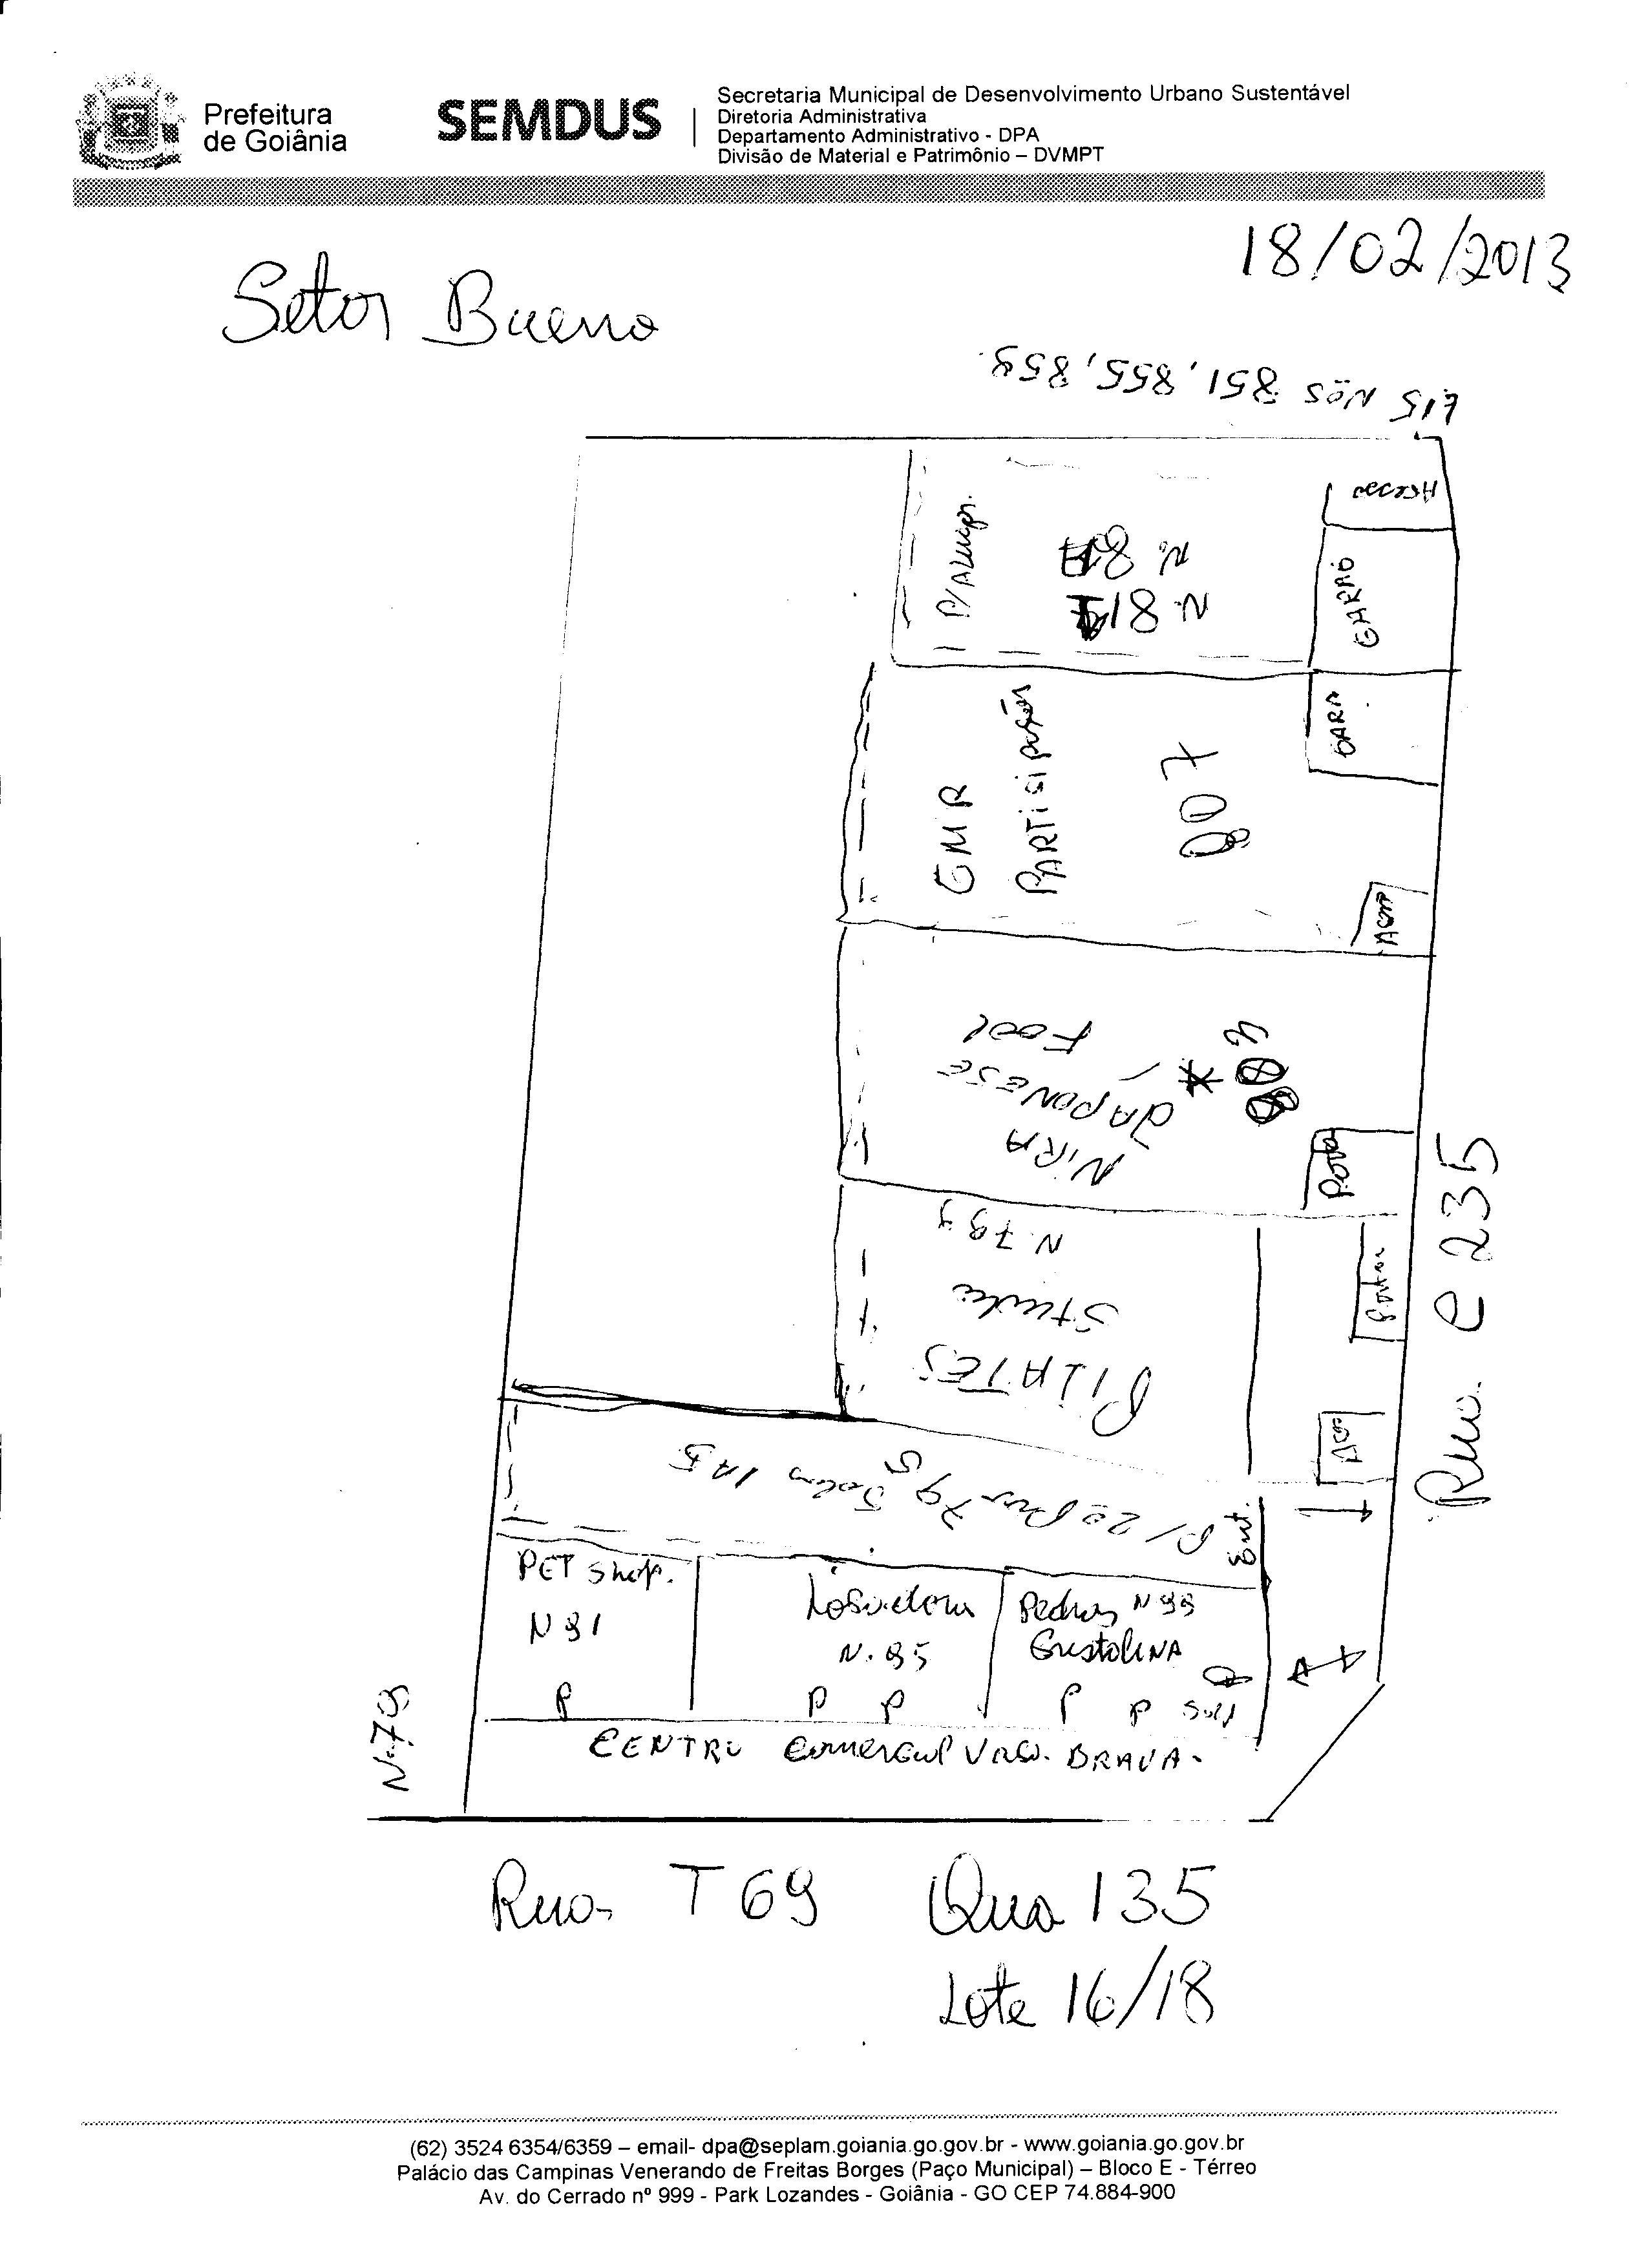 Prefeitura
de Goiânia
SEMDUS
Secretaria Municipal de Desenvolvimento Urbano Sustentável
Diretoria Administrativa
Departamento Administrativo - DPA
Divisão de Material e Patrimônio – DVMPT
18/02/2013
Setor Bueno
851, 855, 859.
Acesso
P/Alugar.
GMR
PARTICIPAÇÕES
807
NiRA
JAPONESE
Food
803
Porta
N. 799
Studio
PILATES
P/ 2º Piso 795 Salas 1 A 5
Ent.
PET Shop.
N 91
N. 95
Pedras N 99
P
P P
P P
CENTRO Comercial Vaca. BRAVA.
N. 79
Rua T 69 Qua 135
Lote 16/18
(62) 3524 6354/6359 – email- dpa@seplam.goiania.go.gov.br - www.goiania.go.gov.br
Palácio das Campinas Venerando de Freitas Borges (Paço Municipal) – Bloco E - Térreo
Av. do Cerrado nº 999 - Park Lozandes - Goiânia - GO CEP 74.884-900